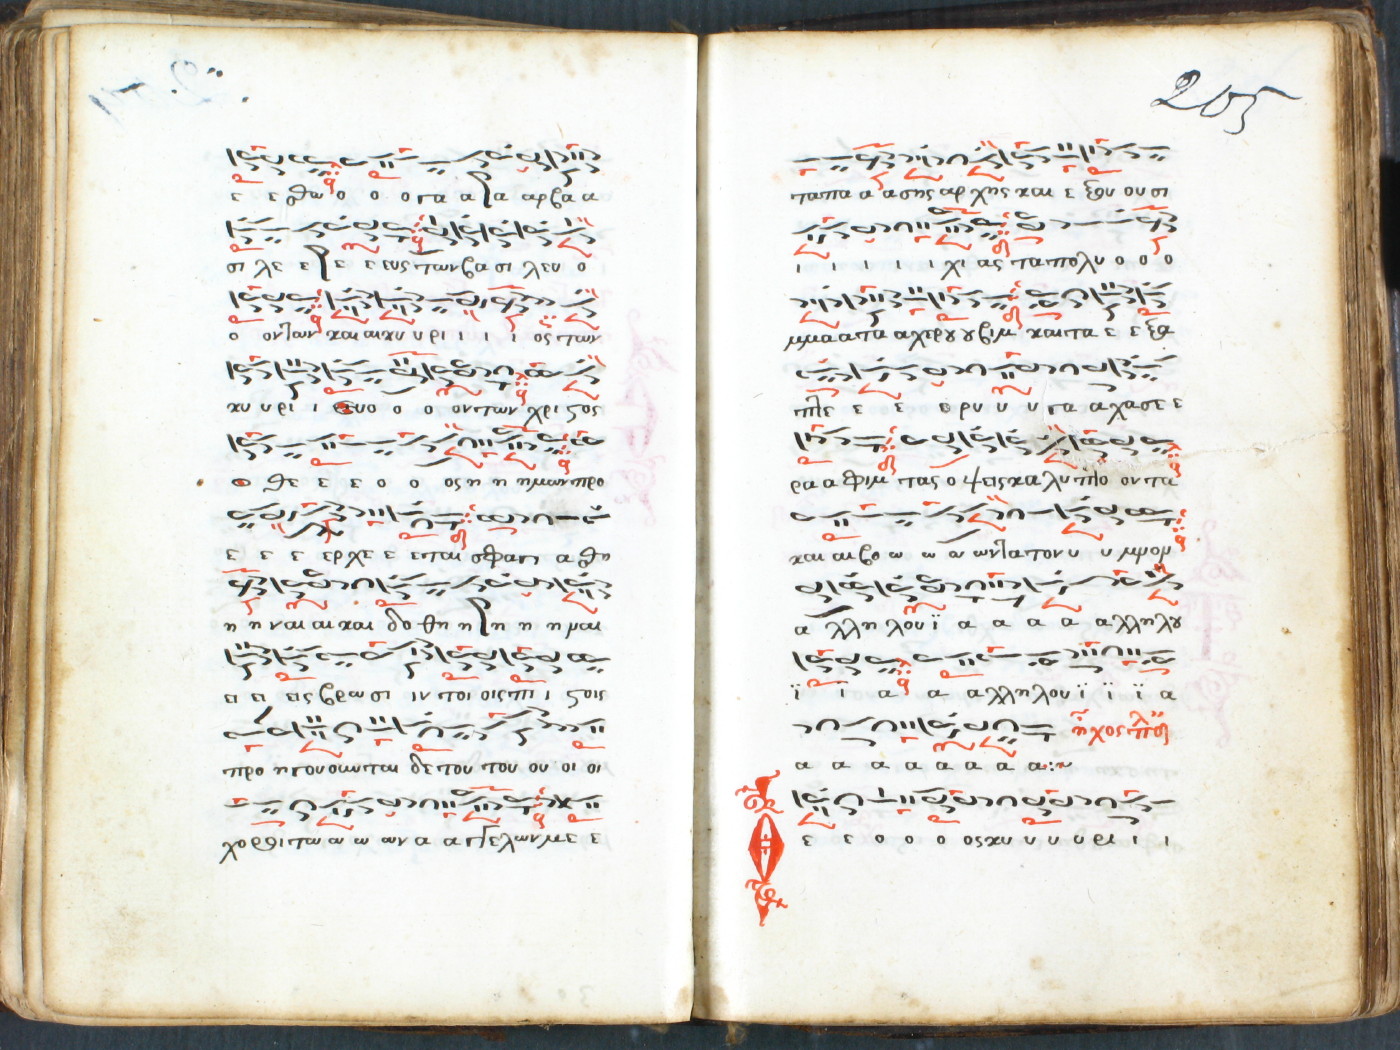 ε ε θω ο ο ο γα α α αρ βα α
σι λε ε ε ε ευς των βα σι λευ ο
ο ον των και αι κυ υ ρι ι ι ι ος των
κυ υ ρι ι ευ ο ο ο ον των χρι ςος
ο θε ε ε ο ο ος η η ημων προ
ε ε ε ερ χε ε εται σφαγι α θη
η η ναι αι και δο θη η η η η ναι
ει ει εις βρω σι ιν τοι οις πι ι ςοις
προ η γουουνται δε του του ου οι οι
χο ροι τω ω ω ων α α γγελων με ε ε
205
τα πα α α σης αρ χης και ε ξου ου σι
ι ι ι ι ι χι ας τα πολυ ο ο ο
μμα α τα α χερου ου βιμ και τα ε ε ξα
πτε ε ε ε ρυ υ υ γα α χα σε ε
ρα α φιμ τας ο ψεις κα λυ πτο ον τα
και αι βο ω ω ω ων τα τον υ υ μνον
α λλη λου ϊ α α α α αλλη λου
ϊ ι α α αλλη λου ϊ ϊ ϊ α
ηχος πλ
α α α α α α α α :~
ε ε ο ο ο ος κυ υ υ υ ρι ι ι